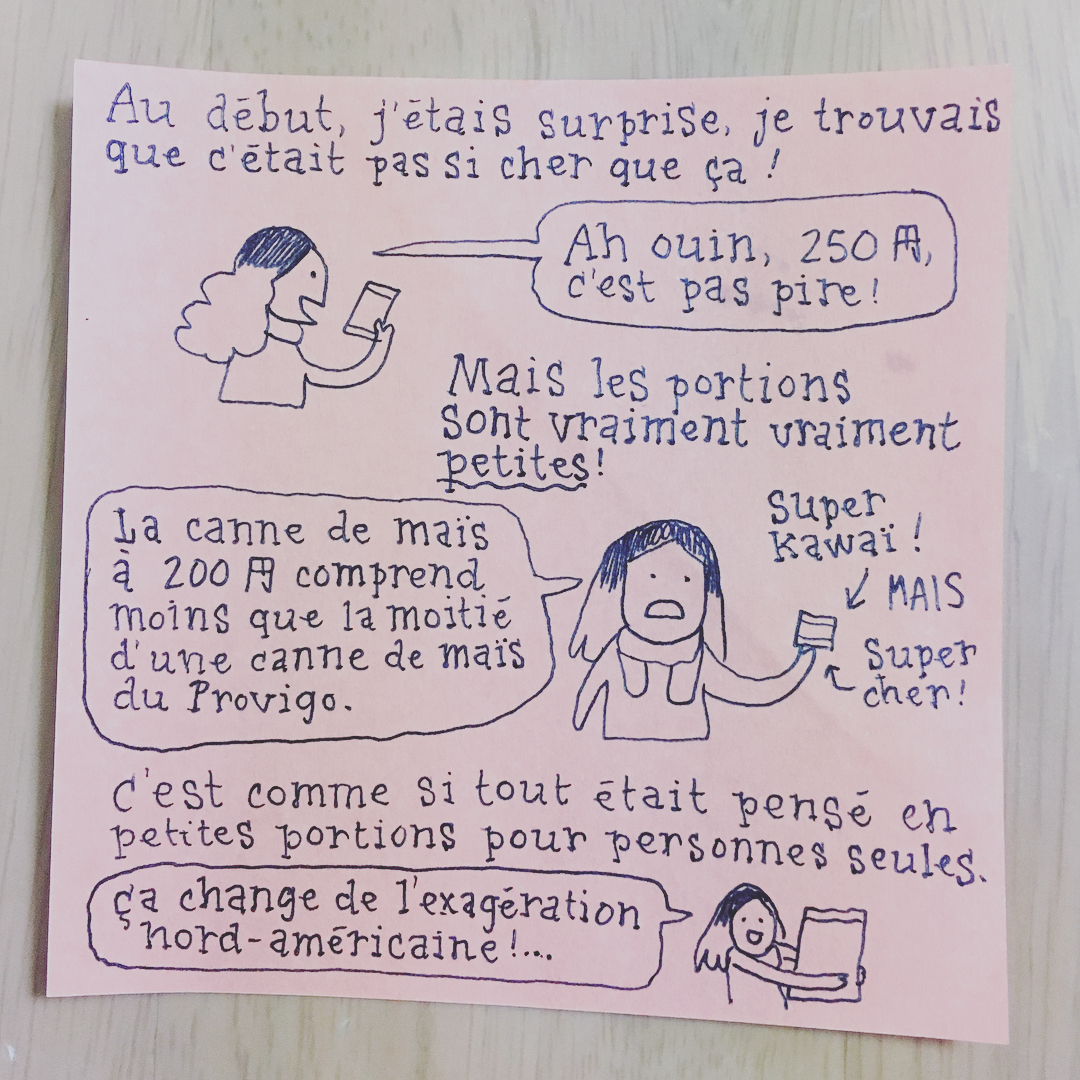 Au début, j'étais surprise, je trouvais
que c'était pas si cher que ça !
Ah ouin, 250 円,
c'est pas pire !
Mais les portions
sont vraiment vraiment
petites !
La canne de maïs
à 200 円 comprend
moins que la moitié
d'une canne de maïs
du Provigo.
Super
Kawaï !
MAIS
Super
cher !
C'est comme si tout était pensé en
petites portions pour personnes seules.
Ça change de l'exagération
nord-américaine !...